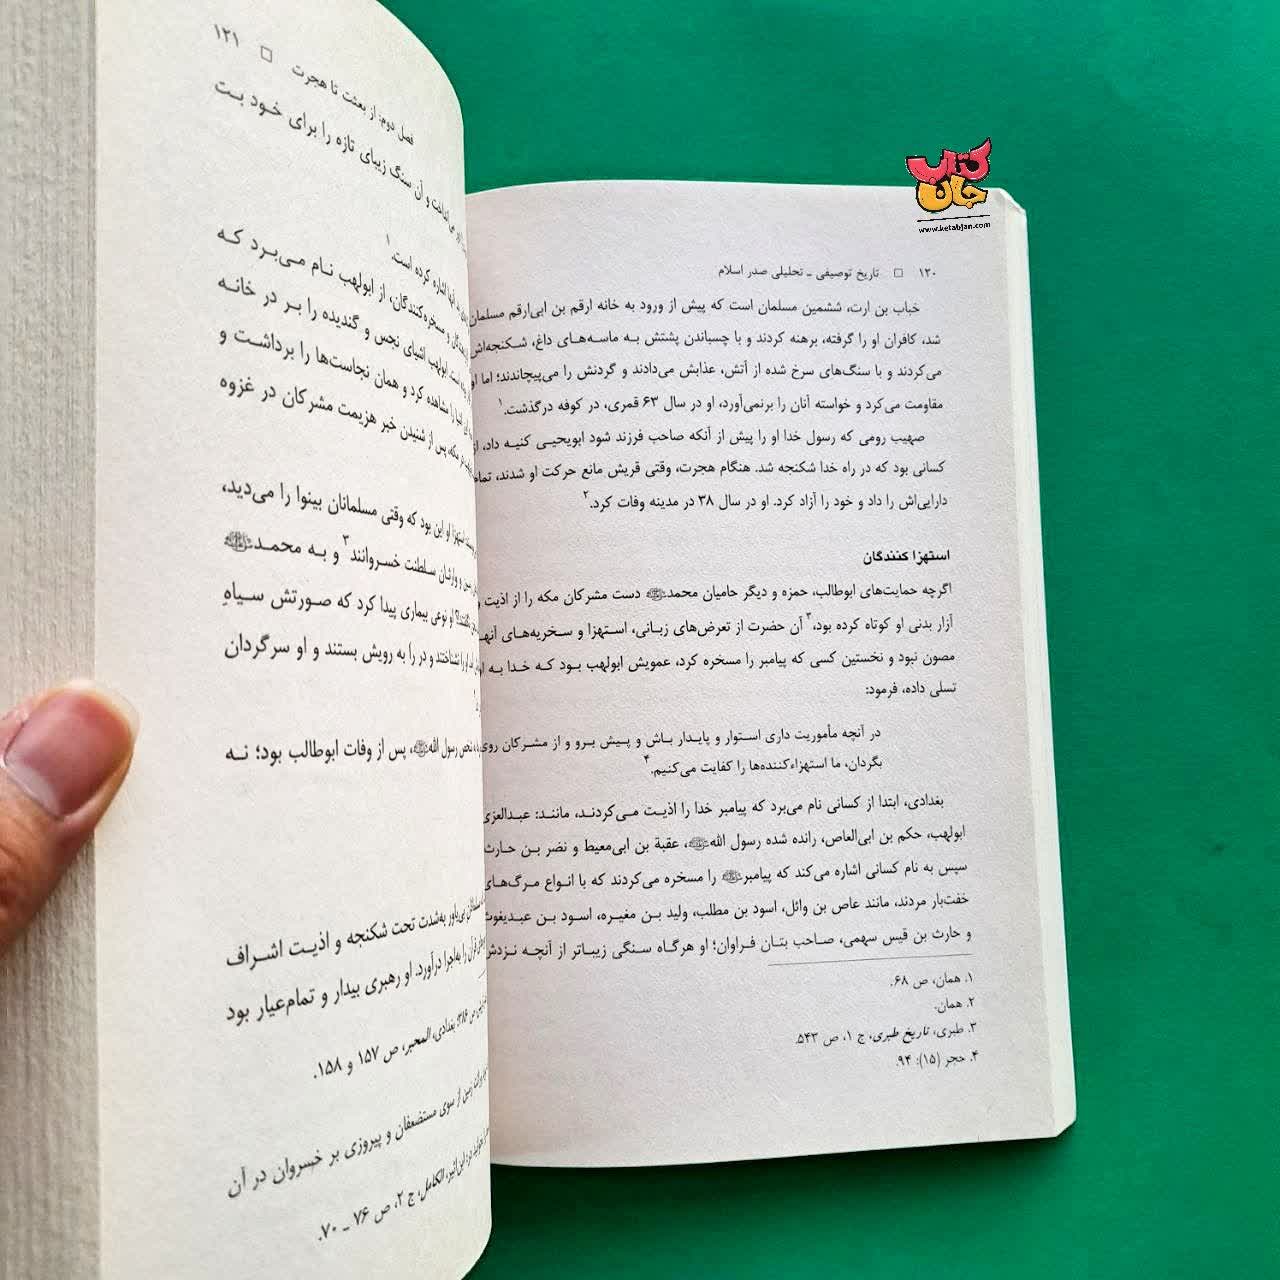 کتاب
جان
www.ketabjan.com
۱۲۰ □ تاریخ توصیفی ـ تحلیلی صدر اسلام
خباب بن ارت، ششمین مسلمان است که پیش از ورود به خانه ارقم بن ابی‌ارقم مسلمان
شد، کافران او را گرفته، برهنه کردند و با چسباندن پشتش به ماسه‌های داغ، شکنجه‌اش
می‌کردند و با سنگ‌های سرخ شده از آتش، عذابش می‌دادند و گردنش را می‌پیچاندند؛ اما او
مقاومت می‌کرد و خواسته آنان را برنمی‌آورد، او در سال ۶۳ قمری، در کوفه درگذشت.۱
صهیب رومی که رسول خدا او را پیش از آنکه صاحب فرزند شود ابویحیی کنیه داد، از
کسانی بود که در راه خدا شکنجه شد. هنگام هجرت، وقتی قریش مانع حرکت او شدند، تمام
دارایی‌اش را داد و خود را آزاد کرد. او در سال ۳۸ در مدینه وفات کرد.۲
استهزا کنندگان
اگرچه حمایت‌های ابوطالب، حمزه و دیگر حامیان محمدﷺ دست مشرکان مکه را از اذیت و
آزار بدنی او کوتاه کرده بود،۳ آن حضرت از تعرض‌های زبانی، استهزا و سخریه‌های آنها
مصون نبود و نخستین کسی که پیامبر را مسخره کرد، عمویش ابولهب بود که خدا به او
تسلی داده، فرمود:
در آنچه مأموریت داری استوار و پایدار باش و پیش برو و از مشرکان روی
بگردان، ما استهزاءکننده‌ها را کفایت می‌کنیم.۴
بغدادی، ابتدا از کسانی نام می‌برد که پیامبر خدا را اذیت می‌کردند، مانند: عبدالعزی
ابولهب، حکم بن ابی‌العاص، رانده شده رسول اللهﷺ، عقبة بن ابی‌معیط و نضر بن حارث
سپس به نام کسانی اشاره می‌کند که پیامبرﷺ را مسخره می‌کردند که با انواع مرگ‌های
خفت‌بار مردند، مانند عاص بن وائل، اسود بن مطلب، ولید بن مغیره، اسود بن عبدیغوث
و حارث بن قیس سهمی، صاحب بتان فراوان؛ او هرگاه سنگی زیباتر از آنچه نزدش
۱. همان، ص ۶۸.
۲. همان.
۳. طبری، تاریخ طبری، ج ۱، ص ۵۴۳.
۴. حجر (۱۵): ۹۴.
فصل دوم: از بعثت تا هجرت □ ۱۲۱
می‌انداخت و آن سنگ زیبای تازه را برای خود بت
آنها اشاره کرده است.۱
و مسخره‌کنندگان، از ابولهب نام می‌برد که
ابولهب اشیای نجس و گندیده را بر در خانه
را مشاهده کرد و همان نجاست‌ها را برداشت و
مکه، پس از شنیدن خبر هزیمت مشرکان در غزوه
استهزا او این بود که وقتی مسلمانان بینوا را می‌دید،
و وارثان سلطنت خسروانند۳ و به محمدﷺ
او نوعی بیماری پیدا کرد که صورتش سیاهِ
او را نشناختند و در را به رویش بستند و او سرگردان
شخص رسول اللهﷺ، پس از وفات ابوطالب بود؛ نه
بی‌یاور به‌شدت تحت شکنجه و اذیت اشراف
قرآن را به‌اجرا درآورد. او رهبری بیدار و تمام‌عیار بود
بغدادی، المحبر، ص ۱۵۷ و ۱۵۸.
زمین از سوی مستضعفان و پیروزی بر خسروان در آن
ابن‌اثیر، الکامل، ج ۲، ص ۷۶ ـ ۷۰.